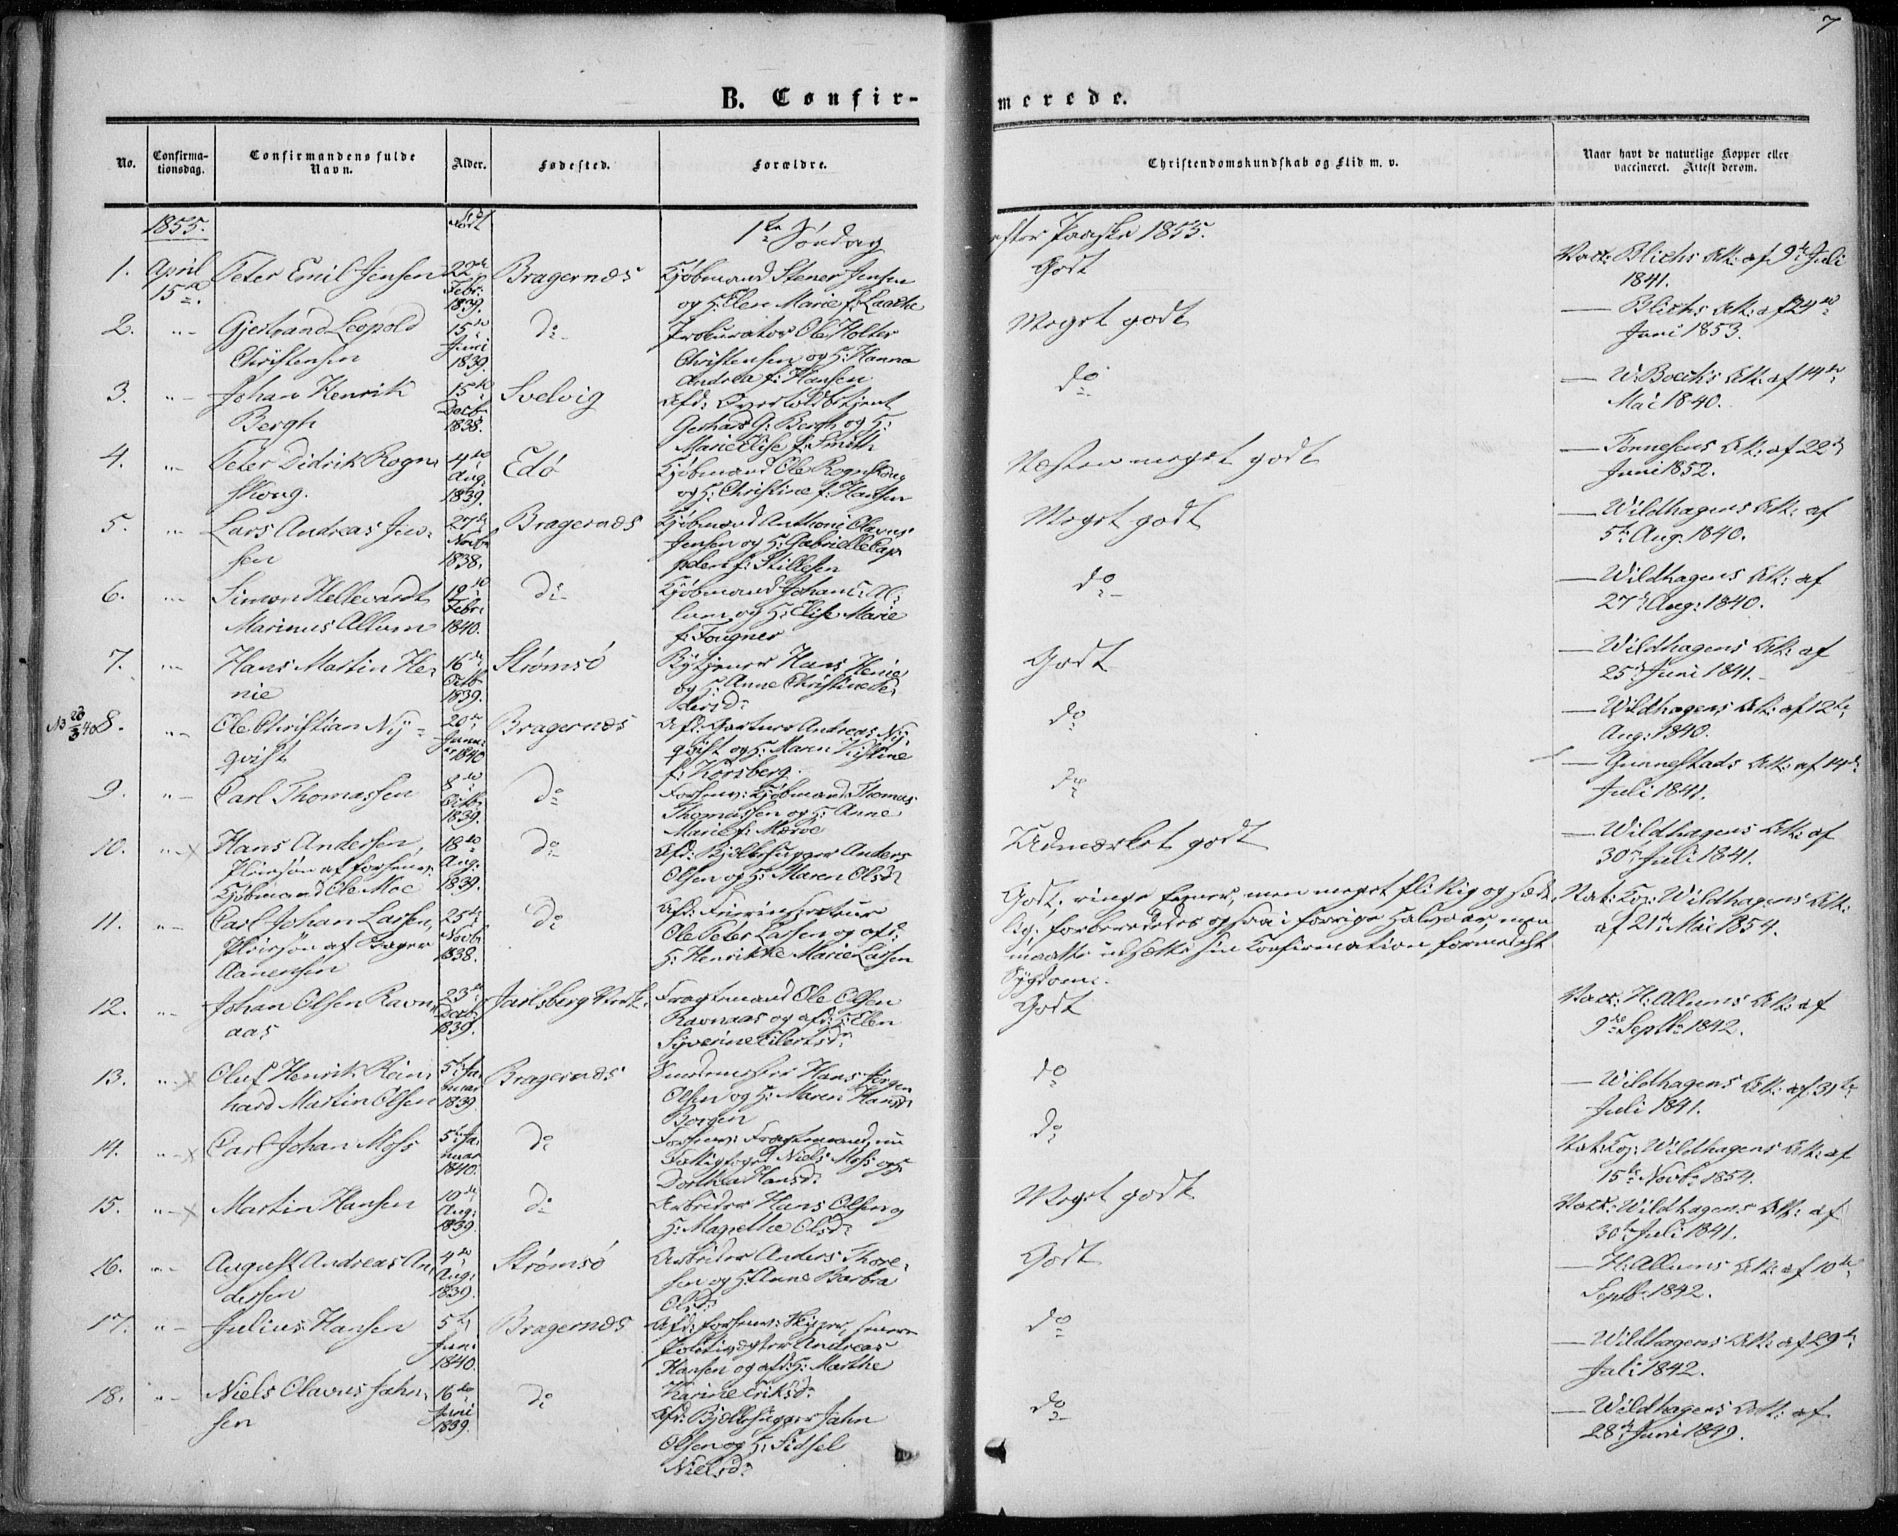 7
B. Confir-
merede.
No.
Confirma-
tionsdag.
Confirmandens fulde
Navn.
Alder.
Fødested.
Forældre.
Christendomskundskab og Flid m. v.
Naar havt de naturlige Kopper eller
vaccineret. Attest derom.
1855.
Født
1ste Søndag
efter Paaske 1855.
1. April 15de
Peter Emil Jensen
22de Febr: 1839.
Bragernæs
Kjøbmand Stener Jensen
og H: Elen Marie f:
Godt
Vacc: Blichs Att: af 9de Juli
1841.
2. "
Gjertrand Leopold
Christensen
15de Juni 1839.
do
Prokurator Ole Holter
Christensen og H: Hanna
Andrea f: Hansen
Meget godt
— Blichs Att: af 24de
Juni 1853.
3. "
Johan Henrik
Bergh
15de Decbr 1838.
Svelvig
Afd: Overtoldbetjent
Gerhard G: Bergh og H:
Marie Elise f: Smith
do
— W. Boecks Att: af 14de
Mai 1840.
4. "
Peter Didrik Rogn-
skoug.
4de Aug. 1839.
Edø
Kjøbmand Ole Rognskoug
og H: Christine f: Hansen
Næsten meget godt
— Tønnesens Att: af 22de
Juni 1852.
5. "
Lars Andreas Jen-
sen
27de Novbr 1838.
Bragernæs
Kjøbmand Anthoni Olavus
Jensen og H: Gabrielle Cap-
pelen f: Stillesen
Meget godt
— Wildhagens Att: af
5te Aug. 1840.
6. "
Simon Hellevardt
Marinus Allum
19de Febr: 1840.
do
Kjøbmand Johan C: Al-
lum og H: Elise Marie
f: Fougner
do
— Wildhagens Att: af
27de Aug: 1840.
7. "
Hans Martin He-
nie
16de Octbr 1839.
Strømsø
Bytjener Hans Henie
og H: Anne Christine Pe-
dersd:
Godt
— Wildhagens Att: af
25de Juni 1841.
8. "
Ole Christian Ny-
qvist
20de Janu-
ar 1840
Bragernæs
Afd: Andreas Ny-
qvist og H: Maren Kistine
f: Korsberg.
do
— Wildhagens Att: af 12te
Aug: 1840.
9. "
Carl Thomassen
8de Octbr 1839.
do
Forhenv: Kjøbmand Thomas
Thomassen og H: Anne
Marie f: Mærve
do
— Gunnestads Att: af 14de
Juli 1841.
10. " x
Hans Andersen,
Pleiesøn af forhenv:
Kjøbmand Ole Moe
18de Aug. 1839.
do
Afd: Bjelkehugger Anders
Olsen og H: Maren Olsd:
Udmærket godt
— Wildhagens Att: af
30te Juli 1841.
11. "
Carl Johan Larsen,
Pleiesøn af Bager
Aanensen
25de Novbr 1838.
do
Afd:
Ole Peter Larsen og afd:
H: Henrikke Marie Larsen
Godt; ringe Evner, men meget flittig og sæde-
lig; forberededes ogsaa i forrige Halvaar, men
maatte udsætte sin Confirmation formedelst
Sygdom.
Nat: Kop: Wildhagens Att:
af 21de Mai 1854.
12. "
Johan Olsen Ravn-
aas
23de Decbr 1839.
Jarlsberg Værk
Fragtemand Ole Olsen
Ravnaas og afd: H: Elen
Syverine Eilertsd:
Godt
Vacc: H. Allums Att: af
9de Septbr 1842.
13. " x
Oluf Henrik Rein-
hard Martin Olsen
5te Ja-
nuar 1839.
Bragernæs
Snedkermester Hans Jørgen
Olsen og H: Maren Hansd:
Borgen
do
— Wildhagens Att: af 31te
Juli 1841.
14. " x
Carl Johan Moss
5te Ja-
nuar 1840.
do
Forhenv: Fragtemand, nu
Fattigfoged Niels Moss og H:
Dorthea Hansd:
do
Nat: Kop: Wildhagens Att: af
15de Novbr 1854.
15. " x
Martin Hansen
10de Aug: 1839.
do
Arbeider Hans Olsen og
H: Magrethe Olsd:
Meget godt
Vacc: Wildhagens Att: af
30te Juli 1841.
16. "
August Andreas An-
dersen
4de Aug: 1839.
Strømsø
Arbeider Anders Thore-
sen og H: Anne Barbra
Olsd:
Godt
— H: Allums Att: af 10de
Septbr 1842.
17. "
Julius Hansen
5te Juni 1840.
Bragernæs
Afd: forhenv: Skipper, senere
Politivægter Andreas
Hansen og afd: H: Marthe
Karine Eriksd:
do
— Wildhagens Att: af 29de
Juli 1842.
18. "
Niels Olavus Jahn-
sen
16de Juni 1839.
do
Afd: Bjelkehugger Jahn
Olsen og H: Sidsel
Nielsd:
do
— Wildhagens Att: af
28de Juni 1849.